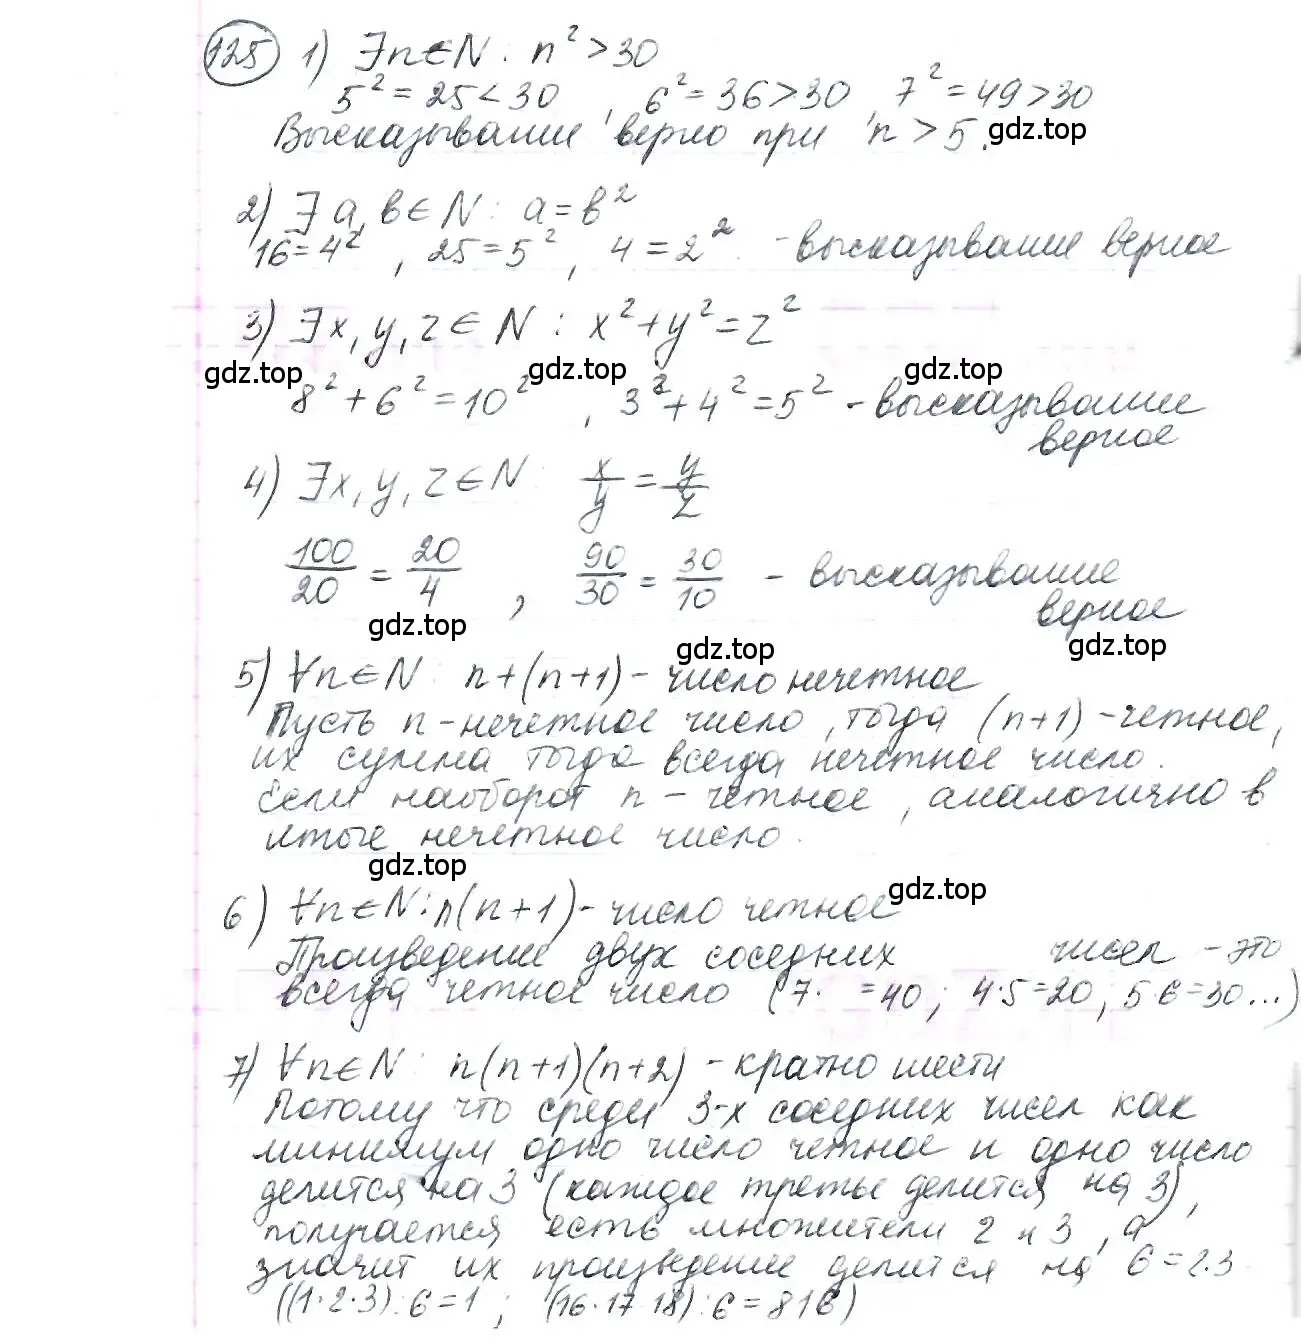 125 1) ∃n∈N: n² > 30
5² = 25 < 30, 6² = 36 > 30, 7² = 49 > 30
Высказывание верно при n > 5. gdz.top
2) ∃ a, b ∈ N: a = b²
16 = 4², 25 = 5², 4 = 2² - высказывание верное
3) ∃x, y, z ∈ N: x² + y² = z²
gdz.top gdz.top gdz.top
8² + 6² = 10², 3² + 4² = 5² - высказывание
верное
4) ∃x, y, z ∈ N x/y = y/z
100/20 = 20/4, 90/30 = 30/10 - высказывание
верное
gdz.top gdz.top gdz.top
5) ∀n∈N: n+(n+1) - число нечетное
Пусть n - нечетное число, тогда (n+1) - четное,
их сумма тогда всегда нечетное число.
Если наоборот n - четное, аналогично в
итоге нечетное число.
gdz.top gdz.top
6) ∀n∈N: n(n+1) - число четное
Произведение двух соседних чисел - это
всегда четное число (7· =40; 4·5=20; 5·6=30...)
7) ∀n∈N: n(n+1)(n+2) - кратно шести
Потому что среди 3-х соседних чисел как
минимум одно число четное и одно число
делится на 3 (каждое третье делится на 3),
получается есть множители 2 и 3, а
значит их произведение делится на 6 = 2·3
((1·2·3):6=1; (16·17·18):6=816)